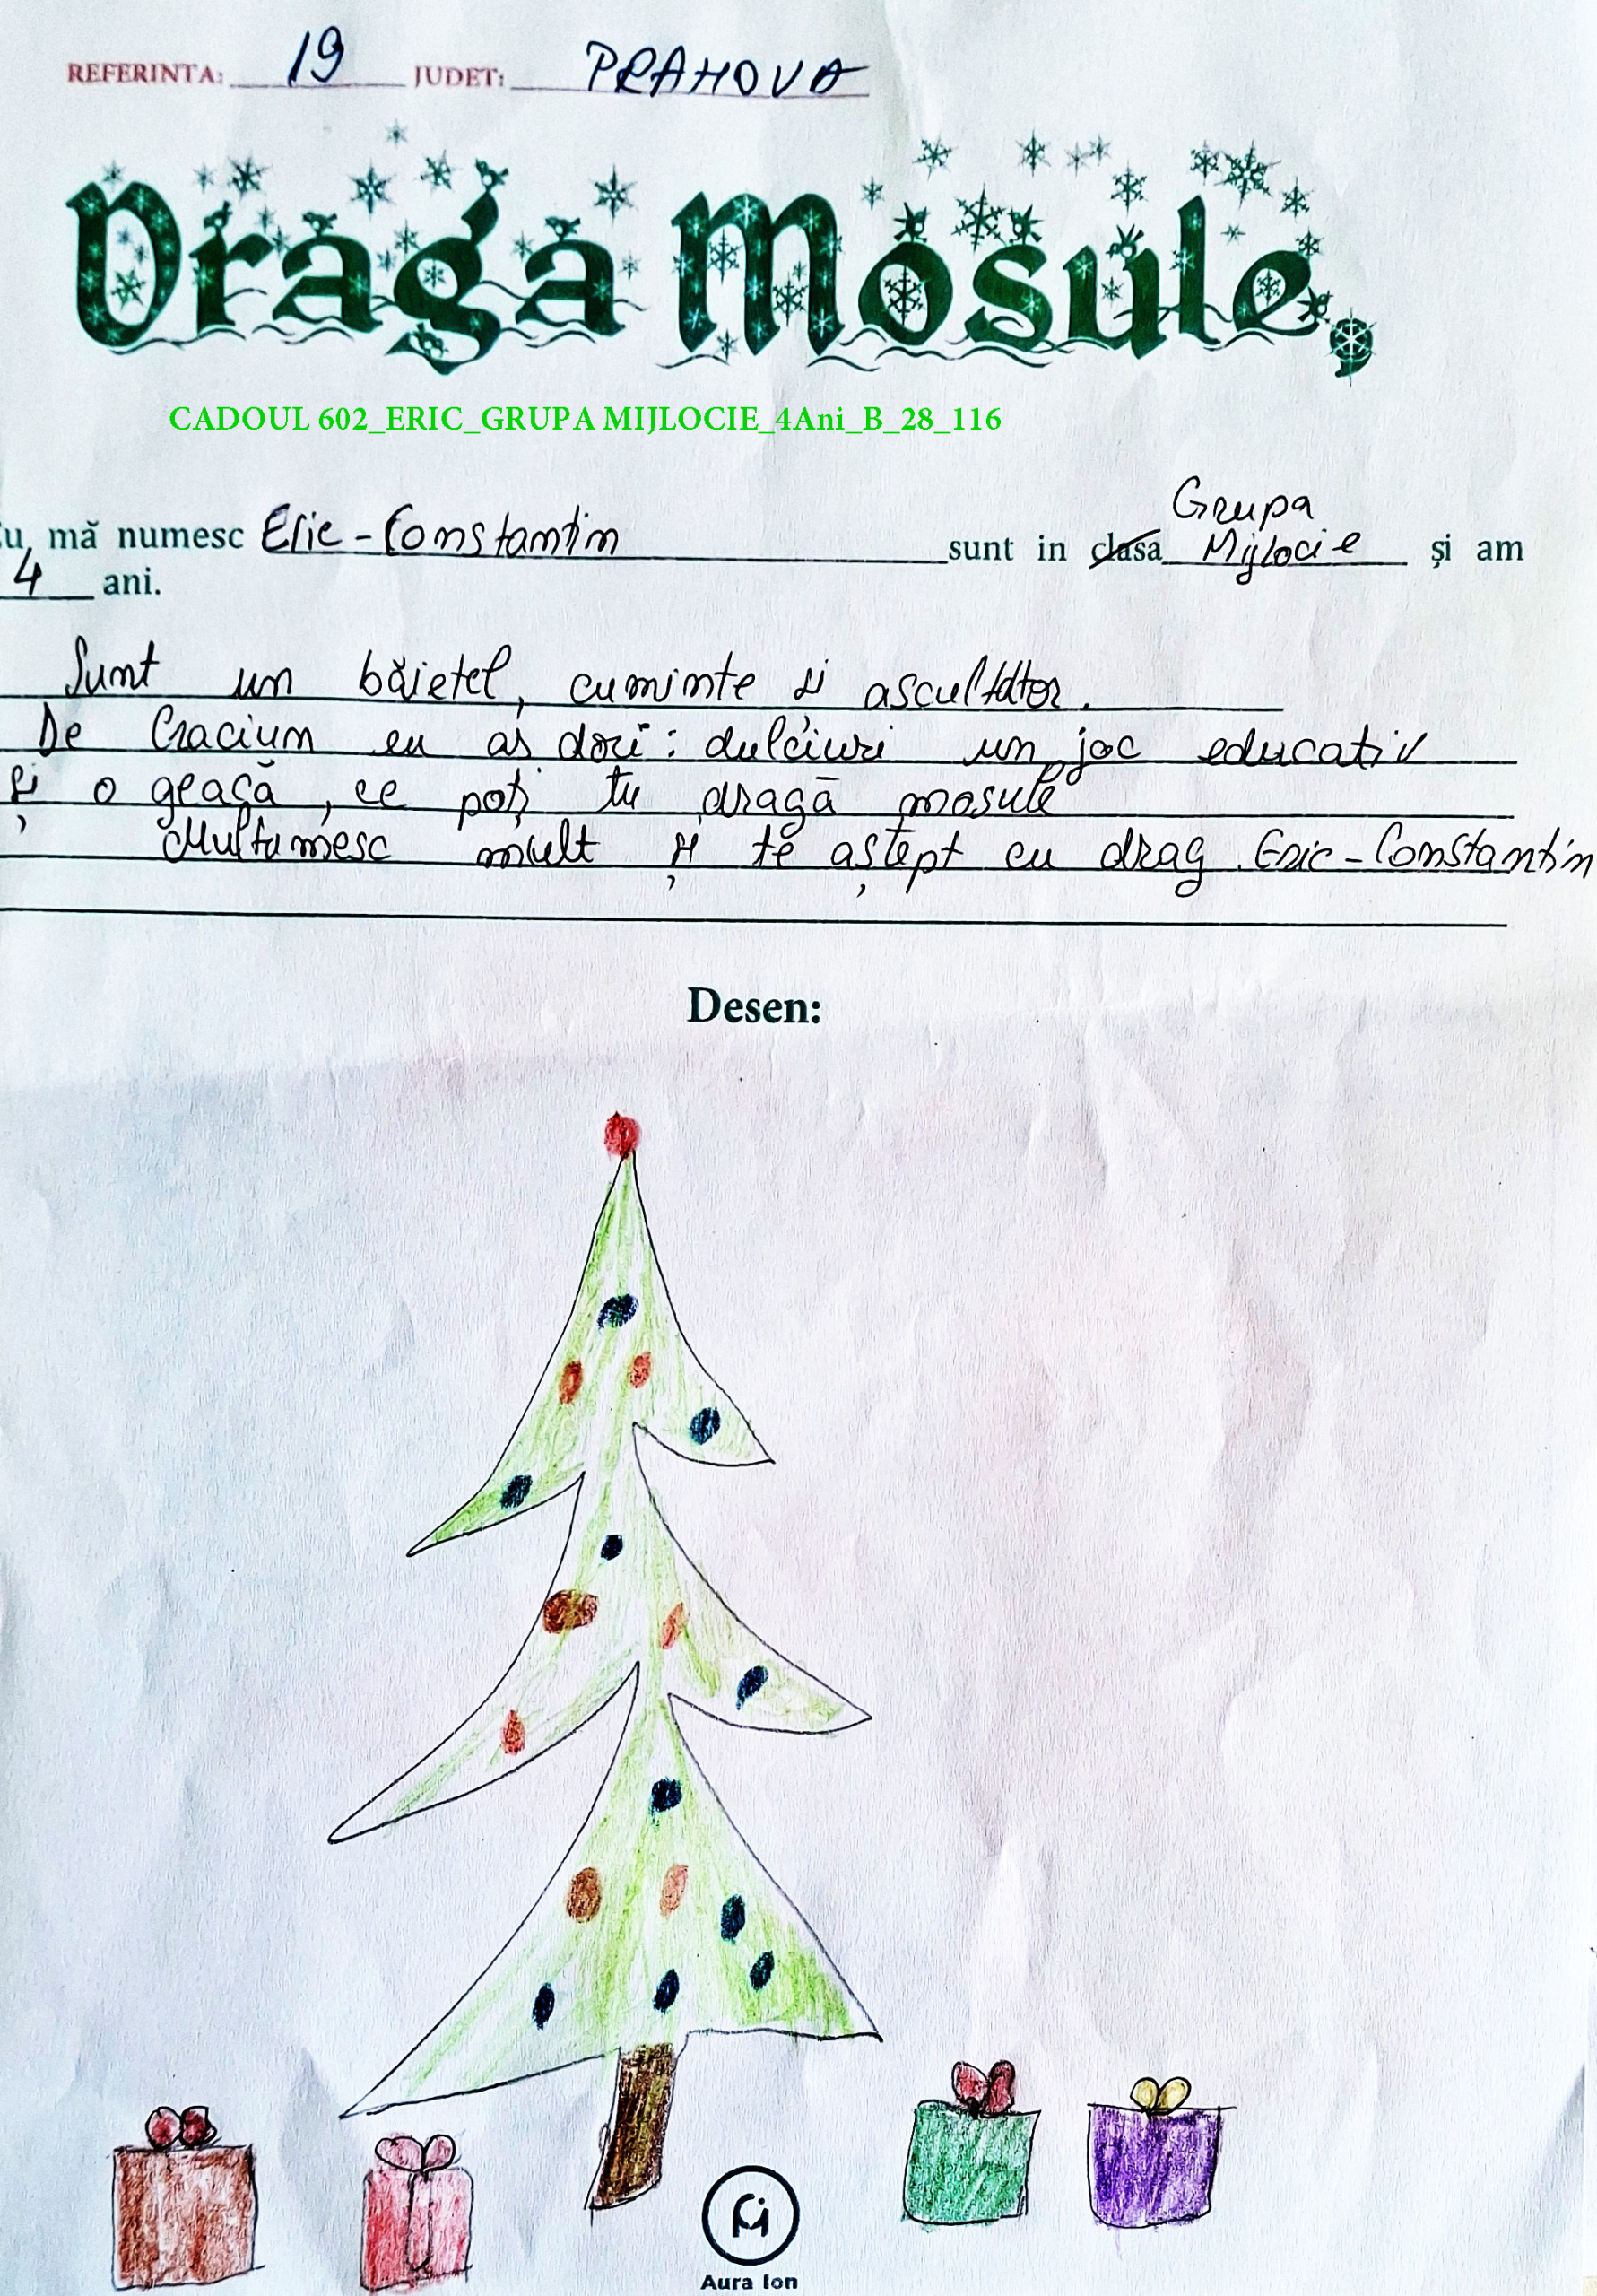 REFERINTA: 19 JUDET: PRAHOVA
Draga Mosule,
CADOUL 602_ERIC_GRUPA MIJLOCIE_4Ani_B_28_116
Grupa
Eu mă numesc Eric-Constantin sunt in clasa Mijlocie și am
4 ani.
Sunt un băietel, cuminte și ascultător.
De Craciun eu aș dori: dulciuri un joc educativ
și o geacă, ce poți tu dragă mosule
Multumesc mult și te aștept cu drag. Eric-Constantin
Desen:
Aura Ion